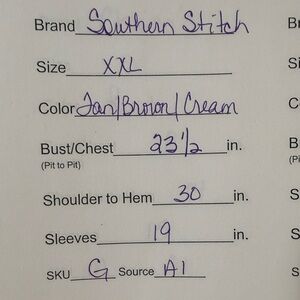 Brand Southern Stitch
Size XXL
Color Tan/Brown/Cream
Bust/Chest 23 1/2 in.
(Pit to Pit)
Shoulder to Hem 30 in.
Sleeves 19 in.
SKU G Source A1